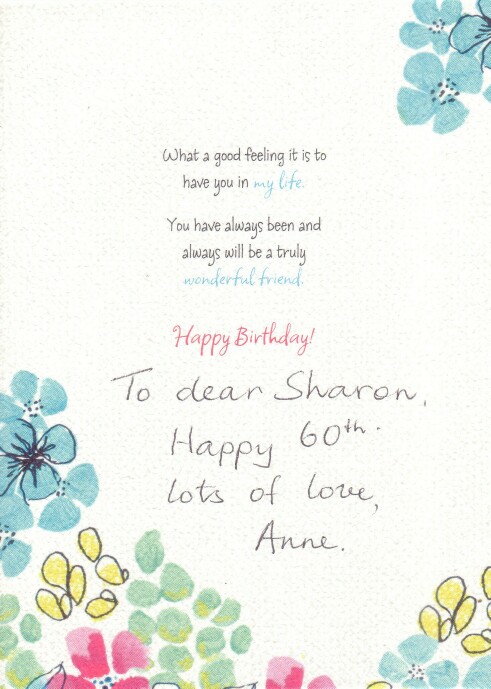 What a good feeling it is to
have you in my life.
You have always been and
always will be a truly
wonderful friend.
Happy Birthday!
To dear Sharon,
Happy 60th.
lots of love,
Anne.